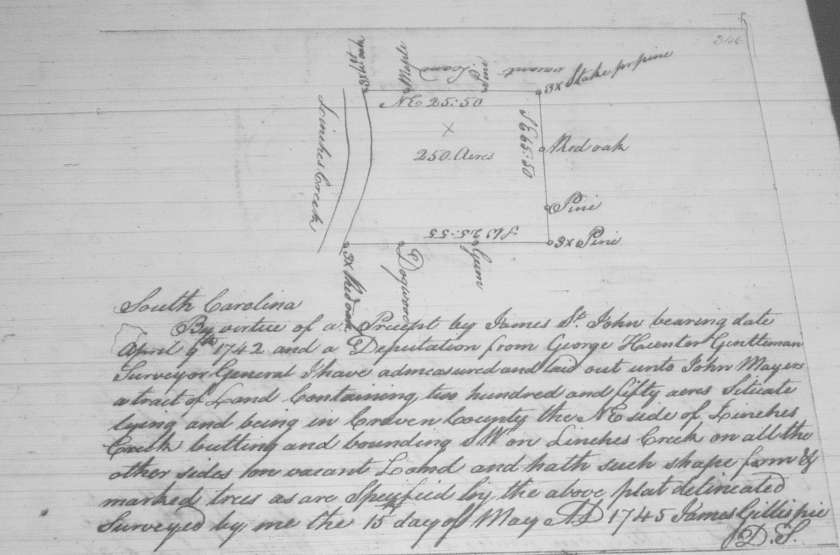 346
3x Wt oak
Maple
Pine
vacant Land
3x Stake for pine
Linches Creek
NE 25:50
250 Acres
SE 65:50
Red oak
Pine
SW 25:55
3x Pine
3x Red oak
Dogwood
Gum
South Carolina
By virtice of a Precept by James St. John bearing date
April 9th 1742 and a Deputation from George Hunter Gentleman
Surveyor General I have admeasured and laid out unto John Mayers
a tract of Land Containing two hundred and fifty acres Situate
lying and being in Craven County the NE side of Linches
Creek butting and bounding SW on Linches Creek on all the
other sides on vacant Land and hath such shape form &
marked trees as are Specified by the above plat delineated
Surveyed by me the 15th day of May AD 1745 James Gillispie
D. S.